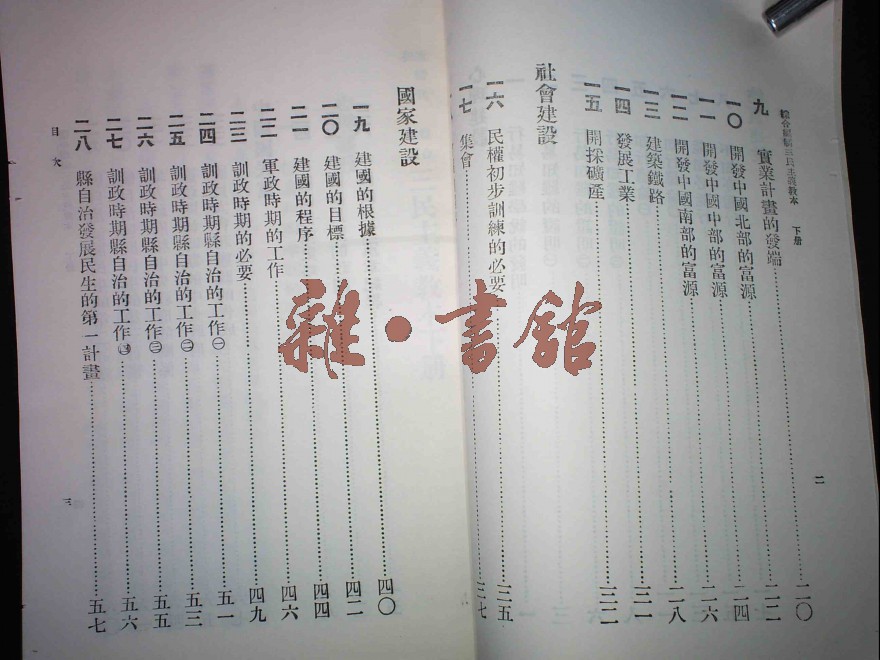 三民主義教本 下册
九 實業計畫的發端……二〇
一〇 開發中國北部的富源……二二
一一 開發中國中部的富源……二四
一二 開發中國南部的富源……二六
一三 建築鐵路……二八
一四 發展工業……三一
一五 開採礦產……三二
社會建設
一六 民權初步訓練的必要……三五
一七 集會……三七
二
國家建設
一九 建國的根據……四〇
二〇 建國的目標……四二
二一 建國的程序……四四
二二 軍政時期的工作……四六
二三 訓政時期的必要……四九
二四 訓政時期縣自治的工作㊀……五一
二五 訓政時期縣自治的工作㊁……五三
二六 訓政時期縣自治的工作㊂……五五
二七 訓政時期縣自治的工作㊃……五六
二八 縣自治發展民生的第一計畫……五七
目次
三
雜·書館